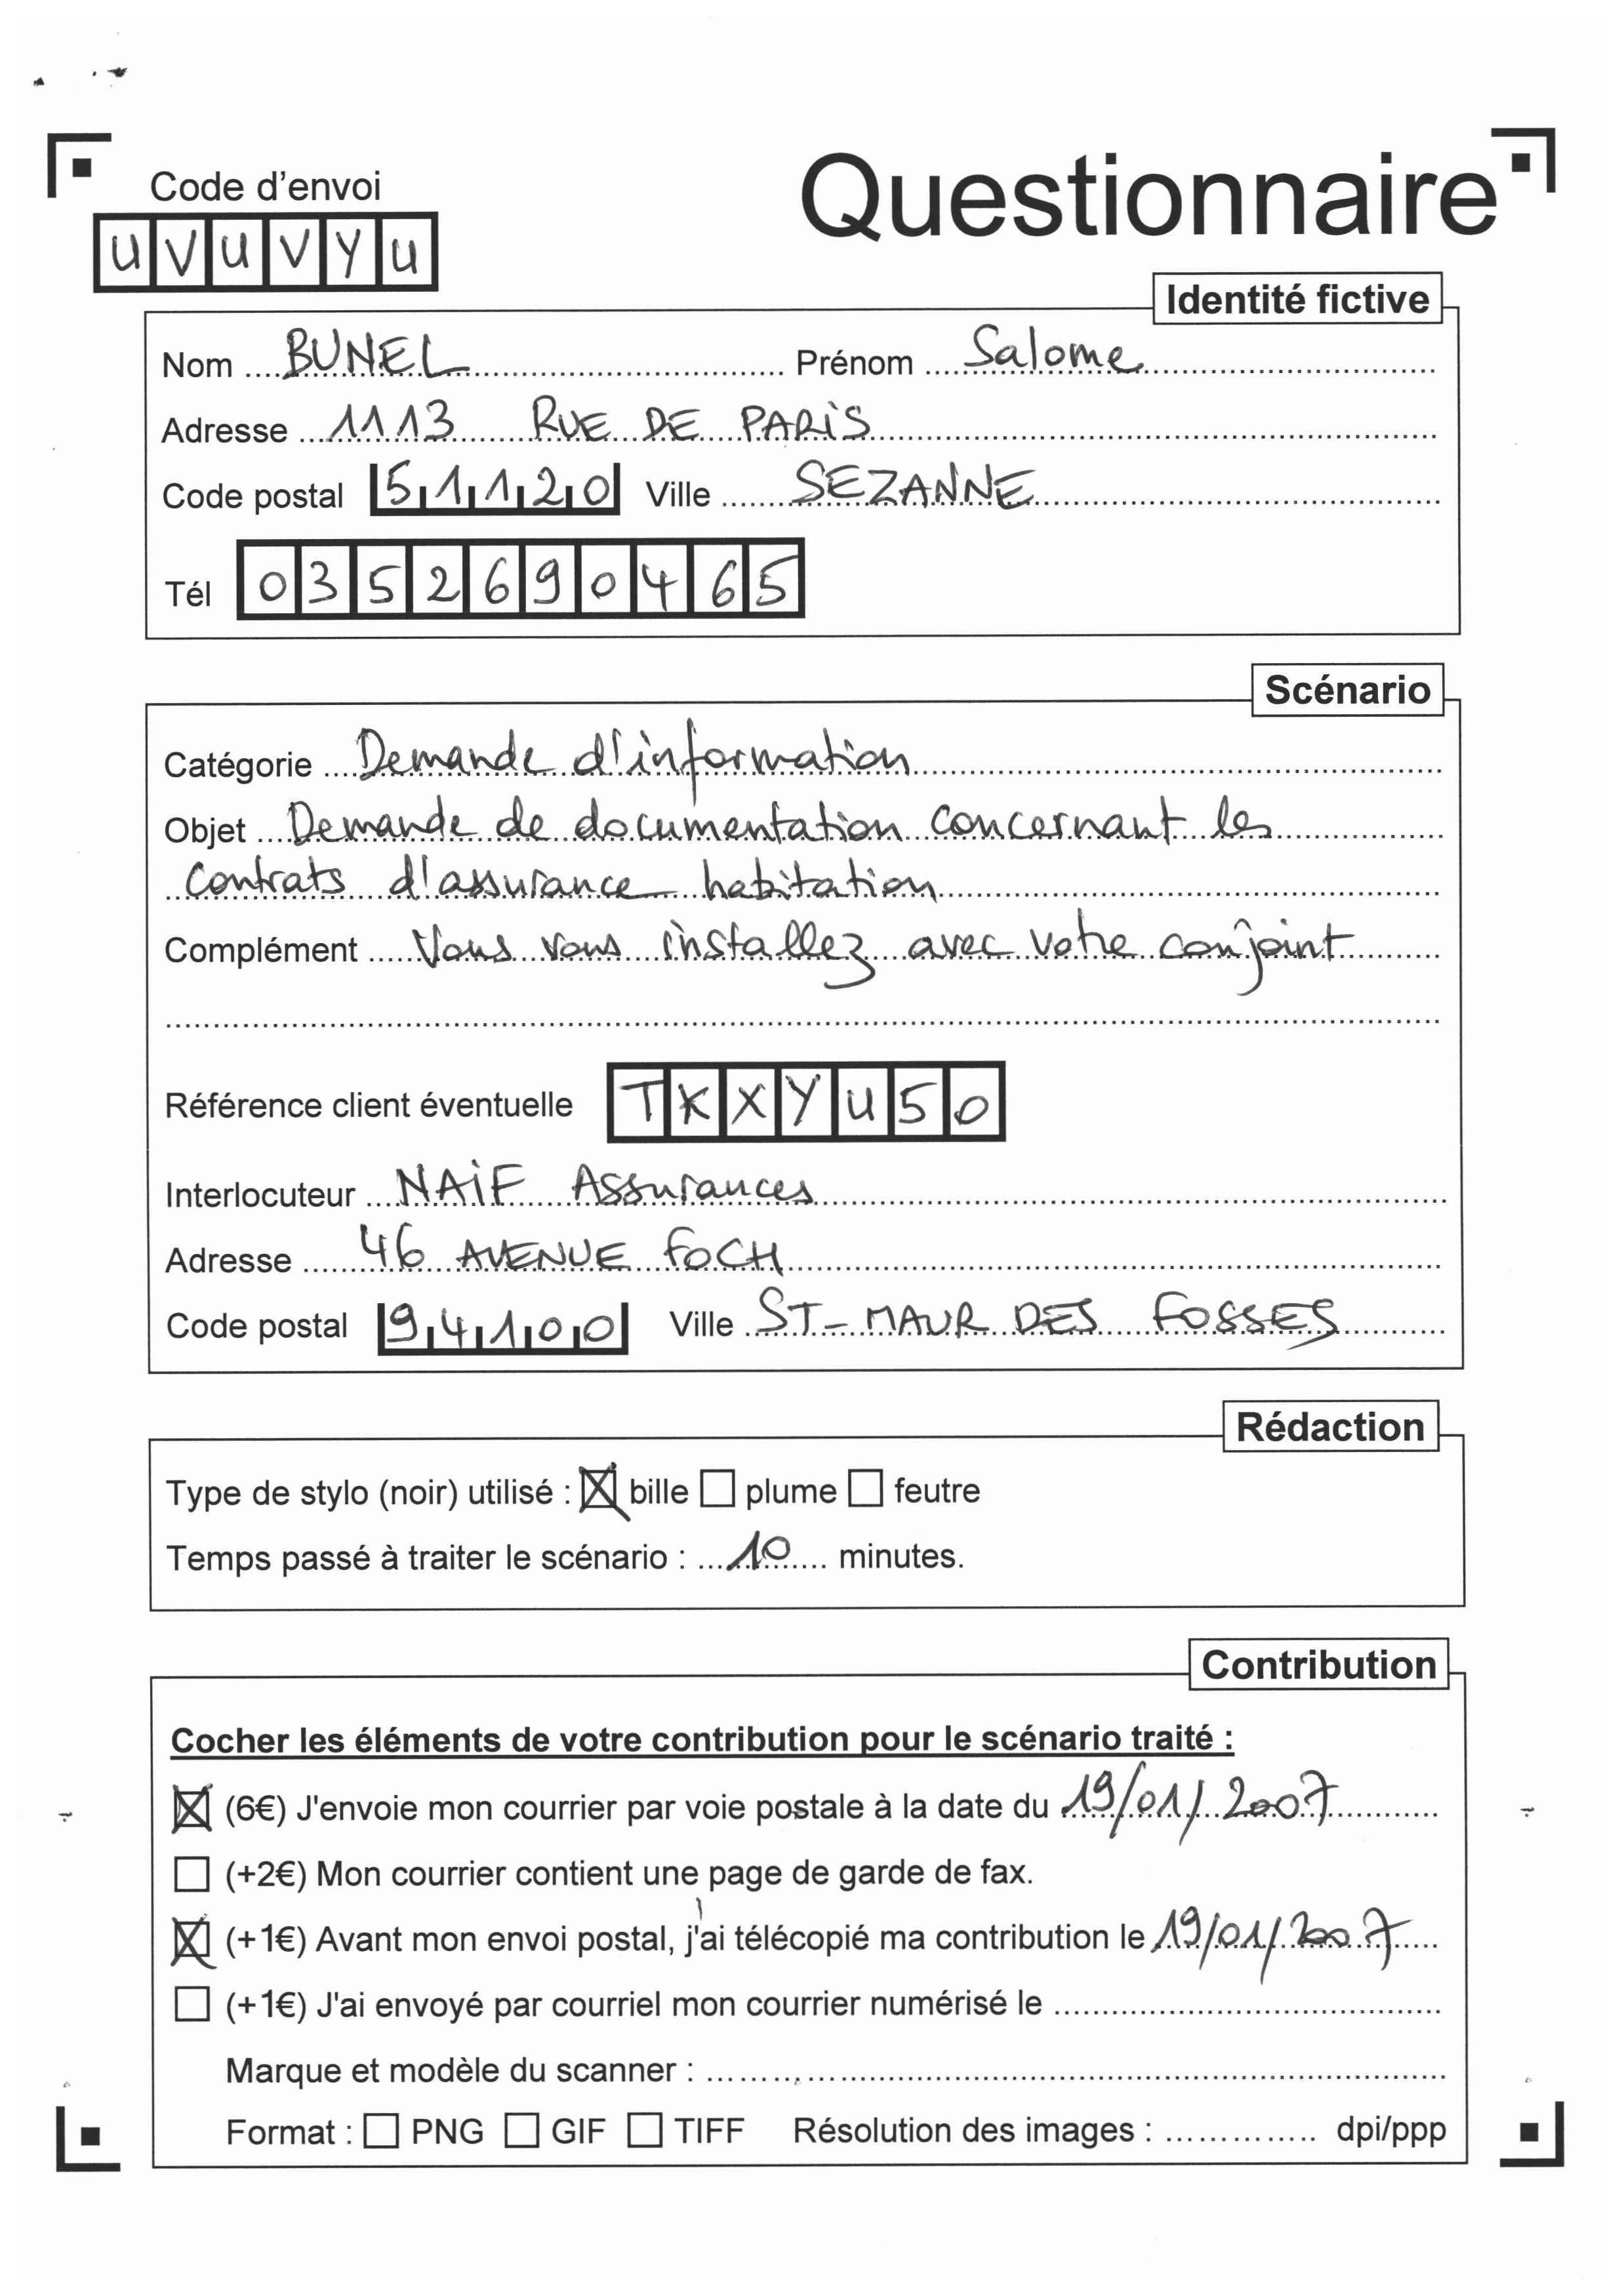 Code d'envoi
Questionnaire
UVUVYU
Identité fictive
Nom BUNEL Prénom Salome
Adresse 1113 RUE DE PARIS
Code postal 51120 Ville SEZANNE
Tél 0352690465
Scénario
Catégorie Demande d'information
Objet Demande de documentation concernant les
contrats d'assurance habitation
Complément Vous vous installez avec votre conjoint
Référence client éventuelle TKXYU50
Interlocuteur NAIF Assurances
Adresse 46 AVENUE FOCH
Code postal 94100 Ville ST-MAUR DES FOSSES
Rédaction
Type de stylo (noir) utilisé : bille plume feutre
Temps passé à traiter le scénario : 10 minutes.
Contribution
Cocher les éléments de votre contribution pour le scénario traité :
(6€) J'envoie mon courrier par voie postale à la date du 19/01/2007
(+2€) Mon courrier contient une page de garde de fax.
(+1€) Avant mon envoi postal, j'ai télécopié ma contribution le 19/01/2007
(+1€) J'ai envoyé par courriel mon courrier numérisé le
Marque et modèle du scanner :
Format : PNG GIF TIFF Résolution des images : dpi/ppp